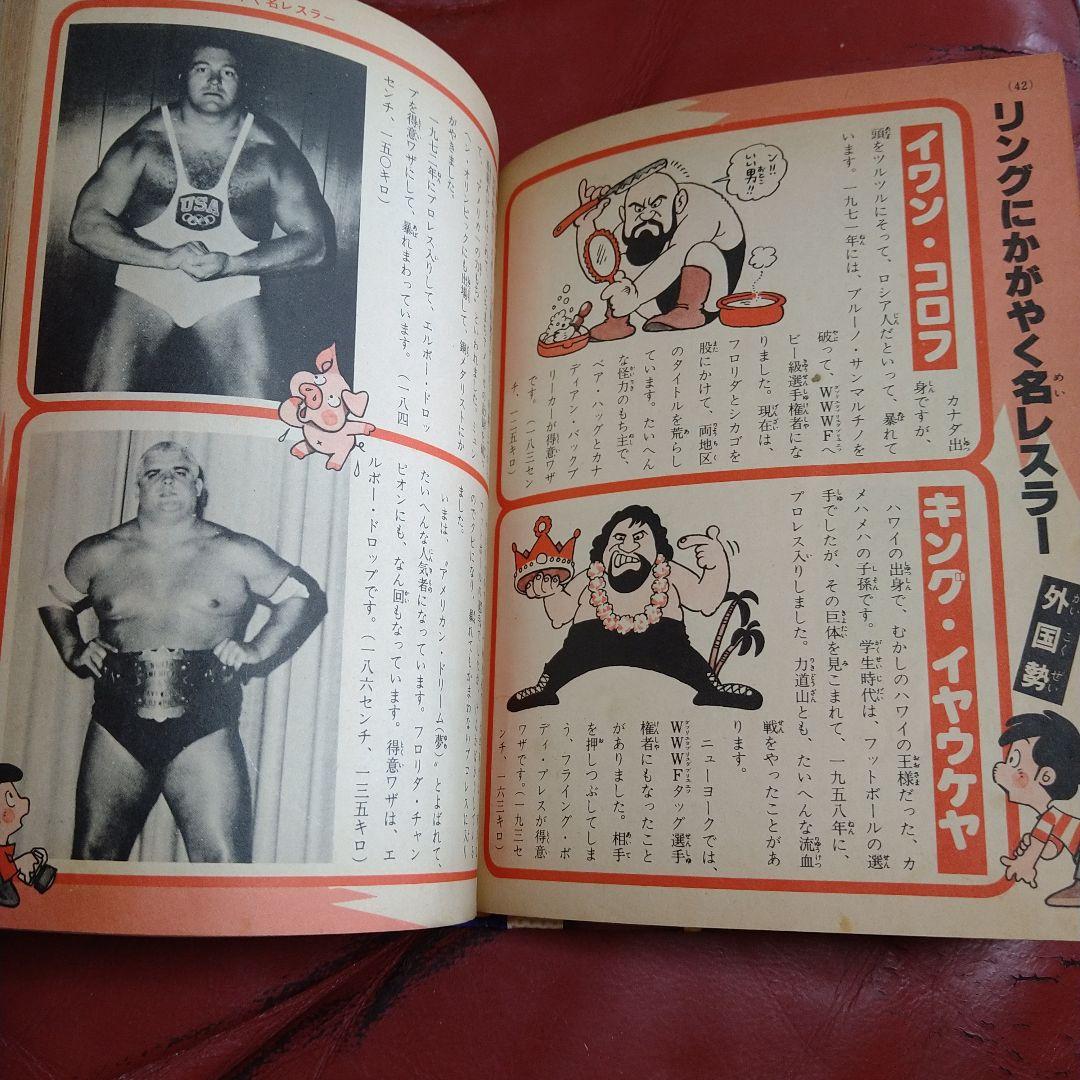 (42)
リングにかがやく名レスラー
めい
外国勢
がいこくぜい
イワン・コロフ
カナダ出
身ですが、
頭をツルツルにそって、ロシア人だといって、暴れて
います。一九七一年には、ブルーノ・サンマルチノを
破って、WWWFヘ
ビー級選手権者にな
りました。現在は、
フロリダとシカゴを
股にかけて、両地区
のタイトルを荒らし
ています。たいへん
な怪力のもち主で、
ベア・ハッグとカナ
ディアン バックブ
リーカーが得意ワザ
です。(一八三セン
チ、一二五キロ)
ン!!
いい男!!
キング・イヤウケヤ
ハワイの出身で、むかしのハワイの王様だった、カ
メハメハの子孫です。学生時代は、フットボールの選
手でしたが、その巨体を見こまれて、一九五八年に、
プロレス入りしました。力道山とも、たいへんな流血
戦をやったことがあ
ります。
ニューヨークでは、
WWWFタッグ選手
権者にもなったこと
がありました。相手
を押しつぶしてしま
う、フライング・ボ
ディ・プレスが得意
ワザです。(一九三セ
ンチ、一六三キロ)
く名レスラー
USA
ヘン・オリンピックにも出場して、銅メダリストにか
がやきました。
一九七二年にプロレス入りして、エルボー・ドロッ
プを得意ワザにして、暴れまわっています。(一八四
センチ、一五〇キロ)
ました。
いまは、“アメリカン・ドリーム(夢)”とよばれて、
たいへんな人気者になっています。フロリダ・チャン
ピオンにも、なん回もなっています。得意ワザは、エ
ルボー・ドロップです。(一八六センチ、一三五キロ)